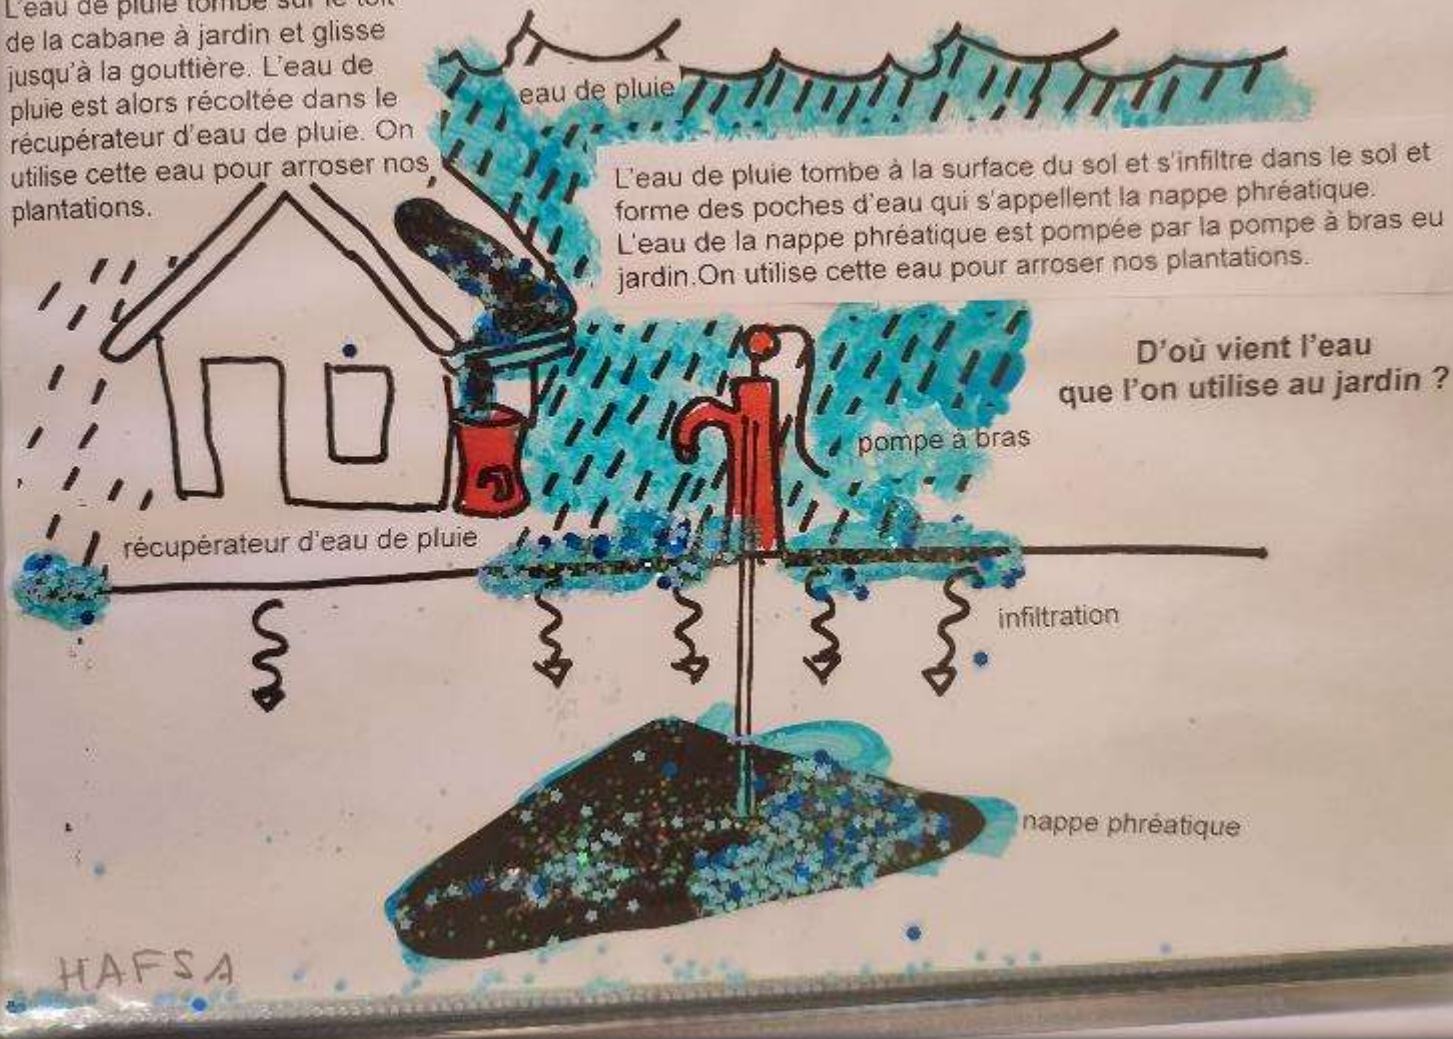 L'eau de pluie tombe sur le toit
de la cabane à jardin et glisse
jusqu'à la gouttière. L'eau de
pluie est alors récoltée dans le
récupérateur d'eau de pluie. On
utilise cette eau pour arroser nos
plantations.
eau de pluie
L'eau de pluie tombe à la surface du sol et s'infiltre dans le sol et
forme des poches d'eau qui s'appellent la nappe phréatique.
L'eau de la nappe phréatique est pompée par la pompe à bras eu
jardin.On utilise cette eau pour arroser nos plantations.
D'où vient l'eau
que l'on utilise au jardin ?
pompe à bras
récupérateur d'eau de pluie
infiltration
nappe phréatique
HAFSA